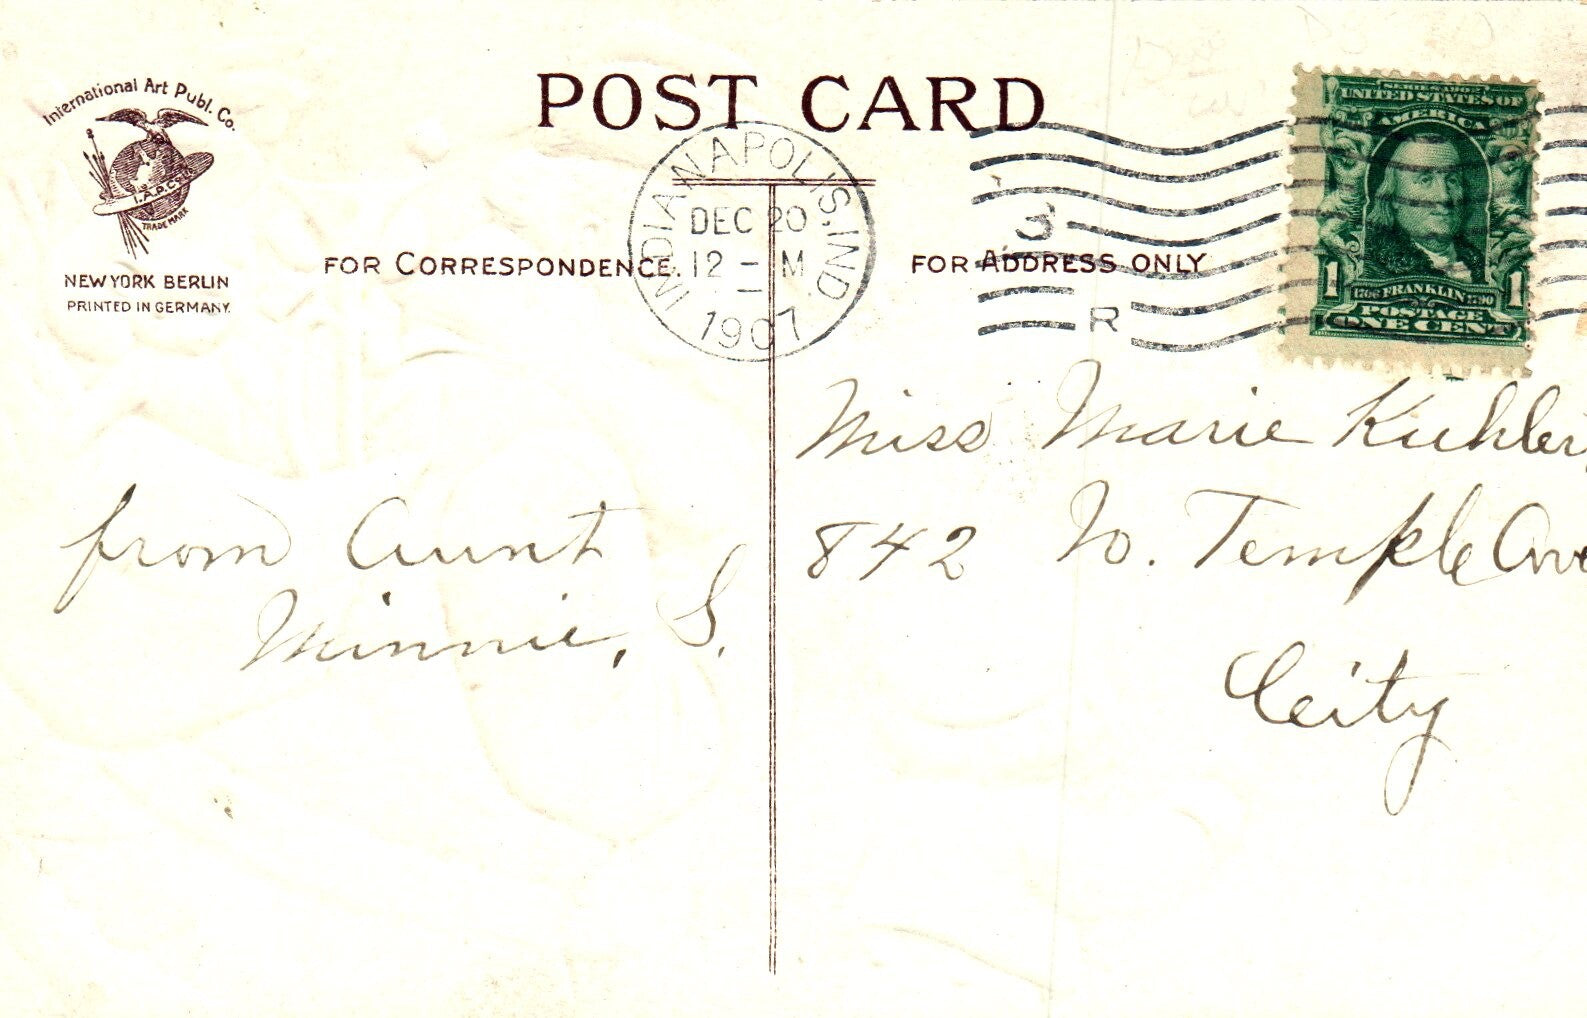 POST CARD
International Art Publ. Co.
I.A.P.Co.
TRADE MARK
NEW YORK BERLIN
PRINTED IN GERMANY.
FOR CORRESPONDENCE.
INDIANAPOLIS, IND.
DEC 20
12 - M
1907
FOR ADDRESS ONLY
3
R
SERIES 1902
UNITED STATES OF
AMERICA
1 1706 FRANKLIN 1790 1
POSTAGE
ONE CENT
from Aunt
Minnie, S.
Miss Marie Kuhler,
842 N. Temple Ave
City